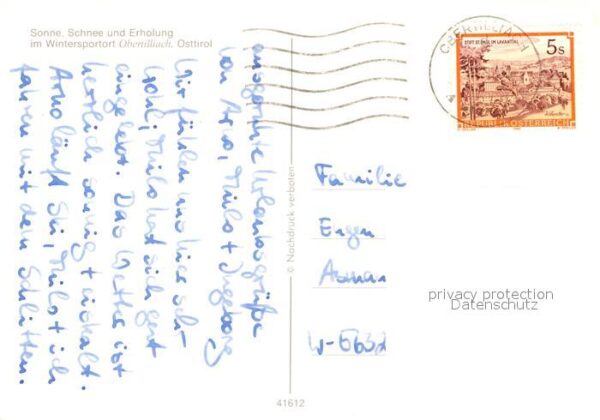 Sonne, Schnee und Erholung
im Wintersportort Obertilliach, Osttirol
OBERTILLIACH
STIFT ST. PAUL IM LAVANTTAL
5s
REPUBLIK ÖSTERREICH
ausgeruhte Urlaubsgrüße
von Arno, Milo + Ingeborg
Wir fühlen uns hier sehr
wohl, Milo hat sich gut
eingelebt. Das Wetter ist
herrlich sonnig + eiskalt.
Arno läuft Ski, Milo + ich
fahren mit dem Schlitten.
© Nachdruck verboten
Familie
W-5632
privacy protection
Datenschutz
41612